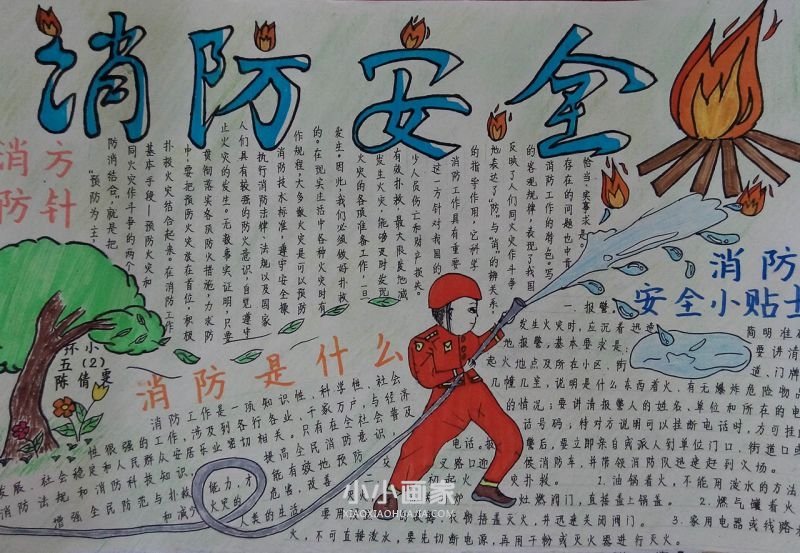 消防安全
消方
防针
“预防为主，
防消结合”，就是把
同火灾作斗争的两个
基本手段—预防火灾和
扑救火灾结合起来。在消防工作
中，要把预防火灾放在首位，积极
贯彻落实各项防火措施，力求防
止火灾的发生。无数事实证明，只要
人们具有较强的防火意识，自觉遵守
执行消防法律、法规以及国家
消防技术标准，遵守安全操
作规程，大多数火灾是可以预防
的。在现实生活中各种火灾时有
发生。因此，我们必须做好扑救
火灾的各项准备工作，一旦
发生火灾，能够及时发现
有效扑救，最大限度地减
少人员伤亡和财产损失。
这一方针对我国的
消防工作具有重要
的指导作用，它科学
地表达了“防”与“消”的辨关系，
反映了人们同火灾作斗争
的客观规律，表现了我国
消防工作的特色。写
存在的问题也中肯
恰当、实事求是。
环小
五(2)
陈倩雯
消防是什么
消防工作是一项知识性、科学性、社会
性很强的工作，涉及到各行各业，千家万户，与经济
发展、社会稳定和人民群众安居乐业密切相关。只有在全社会普及
消防法规和消防科技知识，提高全民消防意识，
增强全民防范与扑救能力，才能有效地预防
和减少火灾的危害，改善
人类的生活。
消防
安全小贴士
一、报警。
发生火灾时，应沉着迅速 简明准确
地报警，基本要求是： 要讲清
起火地点及所在小区、街 道、门牌
几幢几室，说明是什么东西着火，有无爆炸危险物品
的情况；要讲清报警人的姓名、单位和所在的电
话号码；待对方说明可以挂断电话时，方可挂断
电话。报警后，要立即亲自或派人到单位门口、街道口或
交叉路口迎候消防车，并带领消防队迅速赶到火场。
灾扑救。 1.油锅着火，不能用泼水的方法
灶燃阀门，直接盖上锅盖。 2.燃气罐着火，
要用 衣物捂盖灭火，并迅速关闭阀门。 3.家用电器或线路着
火，不可直接泼水，要先切断电源，再用干粉或灭火器进行灭火。
小小画家
XIAOXIAOHUAJIA.COM